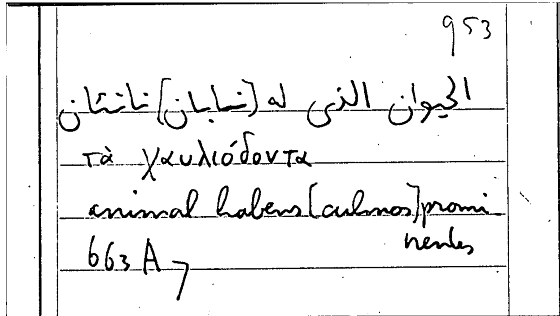 953
الحيوان الذى له [نابان] ناتئان
τὰ χαυλιόδοντα
animal habens [culmos] promi
nentes
663 A 7